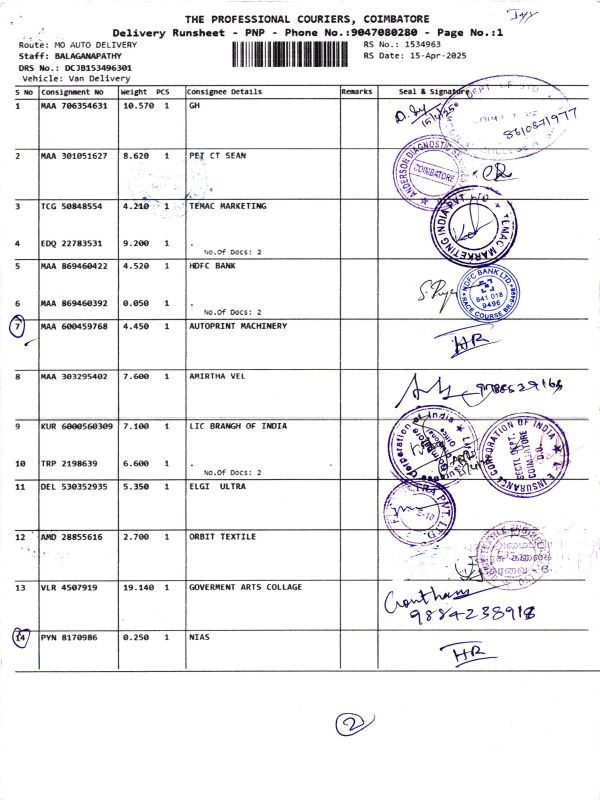 THE PROFESSIONAL COURIERS, COIMBATORE
Delivery Runsheet - PNP - Phone No.:9047080280 - Page No.:1
Route: MO AUTO DELIVERY RS No.: 1534963
Staff: BALAGANAPATHY RS Date: 15-Apr-2025
DRS No.: DCJB153496301
Vehicle: Van Delivery
S NO Consignment No Weight PCS Consignee Details Remarks Seal & Signature
1 MAA 706354631 10.570 1 GH
15/4/25
8610871977
2 MAA 301051627 8.620 1 PET CT SEAN
ANDERSON DIAGNOSTIC
COIMBATORE
3 TCG 50848554 4.210 1 TEMAC MARKETING
TEMAC MARKETING INDIA PVT. LTD
4 EDQ 22783531 9.200 1 .
No.Of Docs: 2
5 MAA 869460422 4.520 1 HDFC BANK
HDFC BANK LTD
641 018
9496
RACE COURSE BR-9496
6 MAA 869460392 0.050 1 .
No.Of Docs: 2
7 MAA 600459768 4.450 1 AUTOPRINT MACHINERY
HR
8 MAA 303295402 7.600 1 AMIRTHA VEL
9 KUR 6000560309 7.100 1 LIC BRANGH OF INDIA
LIFE INSURANCE CORPORATION OF INDIA
DEPT.
COIMBATORE
D.O.
10 TRP 2198639 6.600 1 .
No.Of Docs: 2
11 DEL 530352935 5.350 1 ELGI ULTRA
12 AMD 28855616 2.700 1 ORBIT TEXTILE
13 VLR 4507919 19.140 1 GOVERMENT ARTS COLLAGE
Goutham
9884238918
14 PYN 8170986 0.250 1 NIAS
HR
2